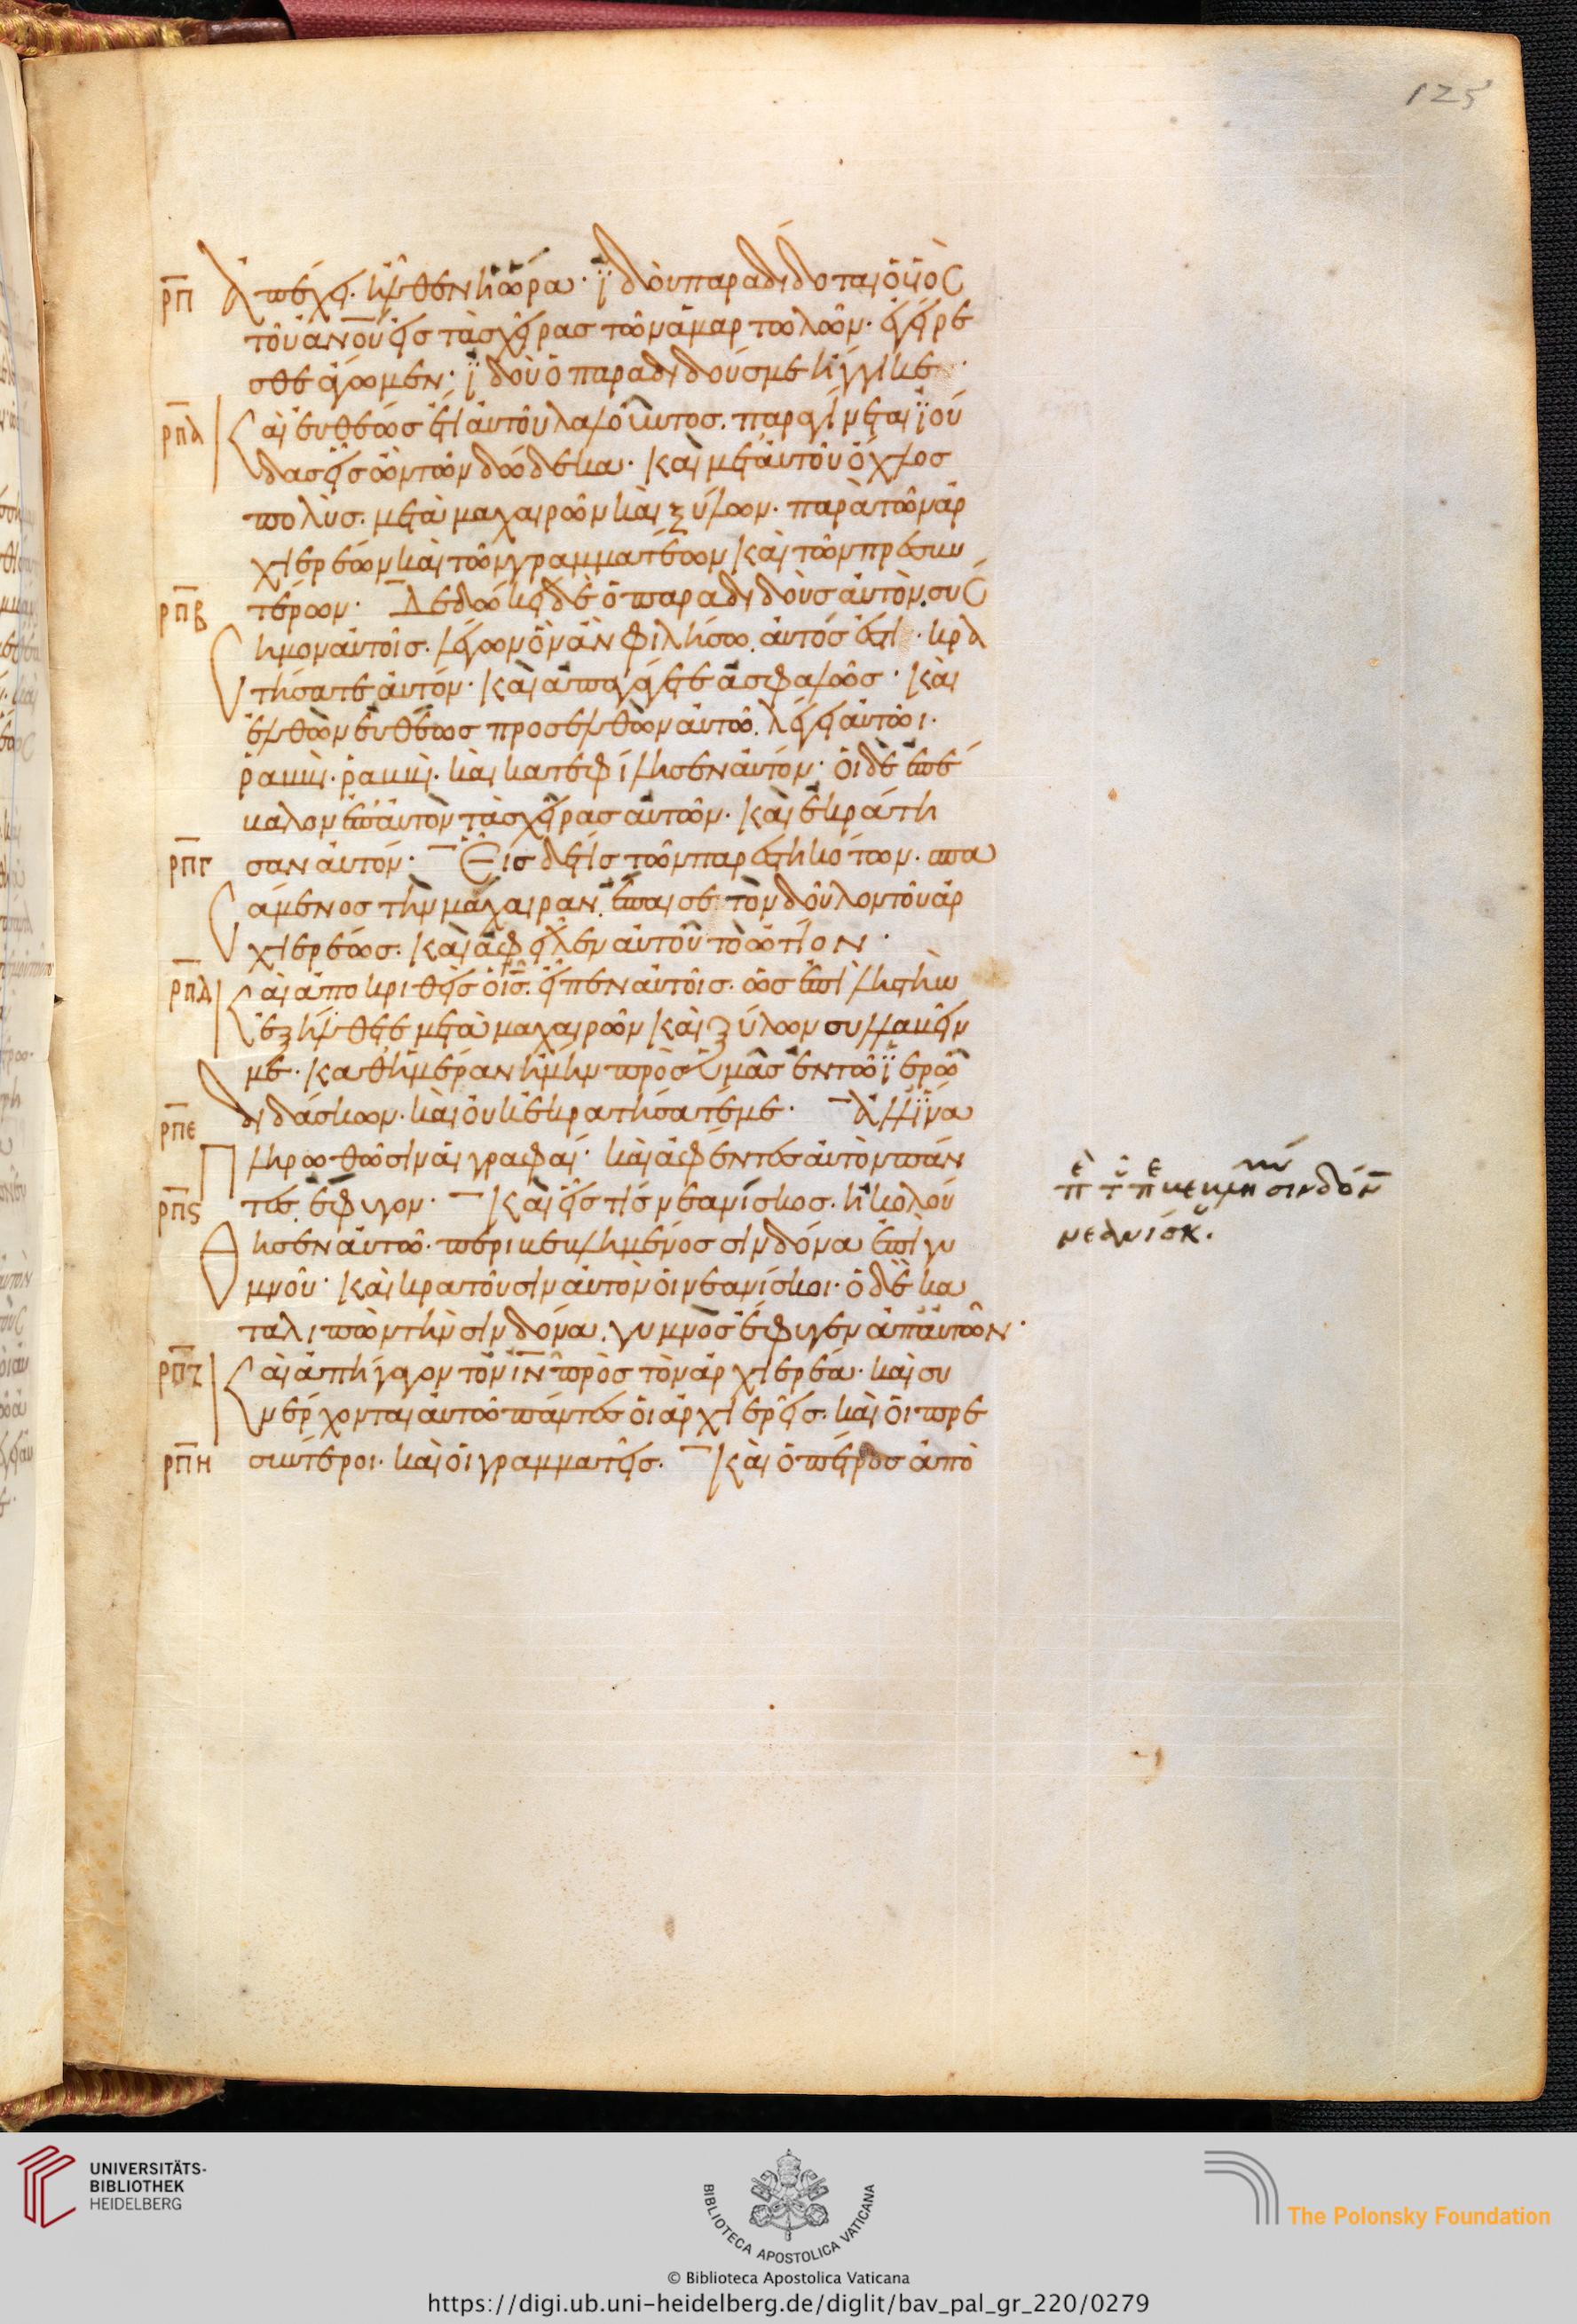 125
ρπ ἀπέχει. ἦλθεν ἡ ὥρα· ἰδοὺ παραδίδοται ὁ υἱὸς
τοῦ ἀνου εἰς τὰς χεῖρας τῶν ἁμαρτωλῶν· ἐγείρε
σθε ἄγωμεν· ἰδοὺ ὁ παραδιδούς με ἤγγικε·
ρπα Καὶ εὐθέως ἔτι αὐτοῦ λαλοῦντος. παραγίνεται ἰού
δας εἷς ὢν τῶν δώδεκα· καὶ μετ' αὐτοῦ ὄχλος
πολὺς. μετὰ μαχαιρῶν καὶ ξύλων. παρὰ τῶν ἀρ
χιερέων καὶ τῶν γραμματέων καὶ τῶν πρεσβυ
ρπβ τέρων· Δεδώκει δὲ ὁ παραδιδοὺς αὐτὸν. συσ
σημον αὐτοῖς. λέγων ὃν ἂν φιλήσω. αὐτός ἐστι· κρα
τήσατε αὐτόν· καὶ ἀπαγάγετε ἀσφαλῶς· καὶ
ἐλθὼν εὐθέως προσελθὼν αὐτῶ. λέγει αὐτῶι·
ῥαββὶ· ῥαββὶ· καὶ κατεφίλησεν αὐτόν· οἱ δὲ ἐπέ
βαλον ἐπ' αὐτὸν τὰς χεῖρας αὐτῶν· καὶ ἐκράτη
ρπγ σαν αὐτόν· Εἷς δέ τις τῶν παρεστηκότων. σπα
σάμενος τὴν μάχαιραν. ἔπαισε τὸν δοῦλον τοῦ ἀρ
χιερέως. καὶ ἀφεῖλεν αὐτοῦ τὸ ὠτίον·
ρπδ Καὶ ἀποκριθεὶς ὁ ις. εἶπεν αὐτοῖς. ὡς ἐπὶ ληστὴν
ἐξήλθετε μετὰ μαχαιρῶν καὶ ξύλων συλλαβεῖν
με. καθ' ἡμέραν ἤμην πρὸς ὑμᾶς ἐν τῶ ἱερῶ
ρπε διδάσκων. καὶ οὐκ ἐκρατήσατέ με· Ἀλλ' ἵνα
πληρωθῶσιν αἱ γραφαί· καὶ ἀφέντες αὐτὸν πάν
ρπς τες. ἔφυγον· Καὶ εἷς τίς νεανίσκος. ἠκολού
θησεν αὐτῶ. περιβεβλημένος σινδόνα ἐπὶ γυ
μνοῦ· καὶ κρατοῦσιν αὐτὸν οἱ νεανίσκοι· ὁ δὲ κα
ταλιπὼν τὴν σινδόνα. γυμνὸς ἔφυγεν ἀπ' αὐτῶν·
ρπζ Καὶ ἀπήγαγον τὸν ιν πρὸς τὸν ἀρχιερέα· καὶ συ
νέρχονται αὐτῶ πάντες οἱ ἀρχιερεῖς. καὶ οἱ πρε
ρπη σβύτεροι. καὶ οἱ γραμματεῖς. Καὶ ὁ πέτρος ἀπὸ
σινδόν
νεανίσκ.
UNIVERSITÄTS-
BIBLIOTHEK
HEIDELBERG
BIBLIOTECA APOSTOLICA VATICANA
The Polonsky Foundation
© Biblioteca Apostolica Vaticana
https://digi.ub.uni-heidelberg.de/diglit/bav_pal_gr_220/0279